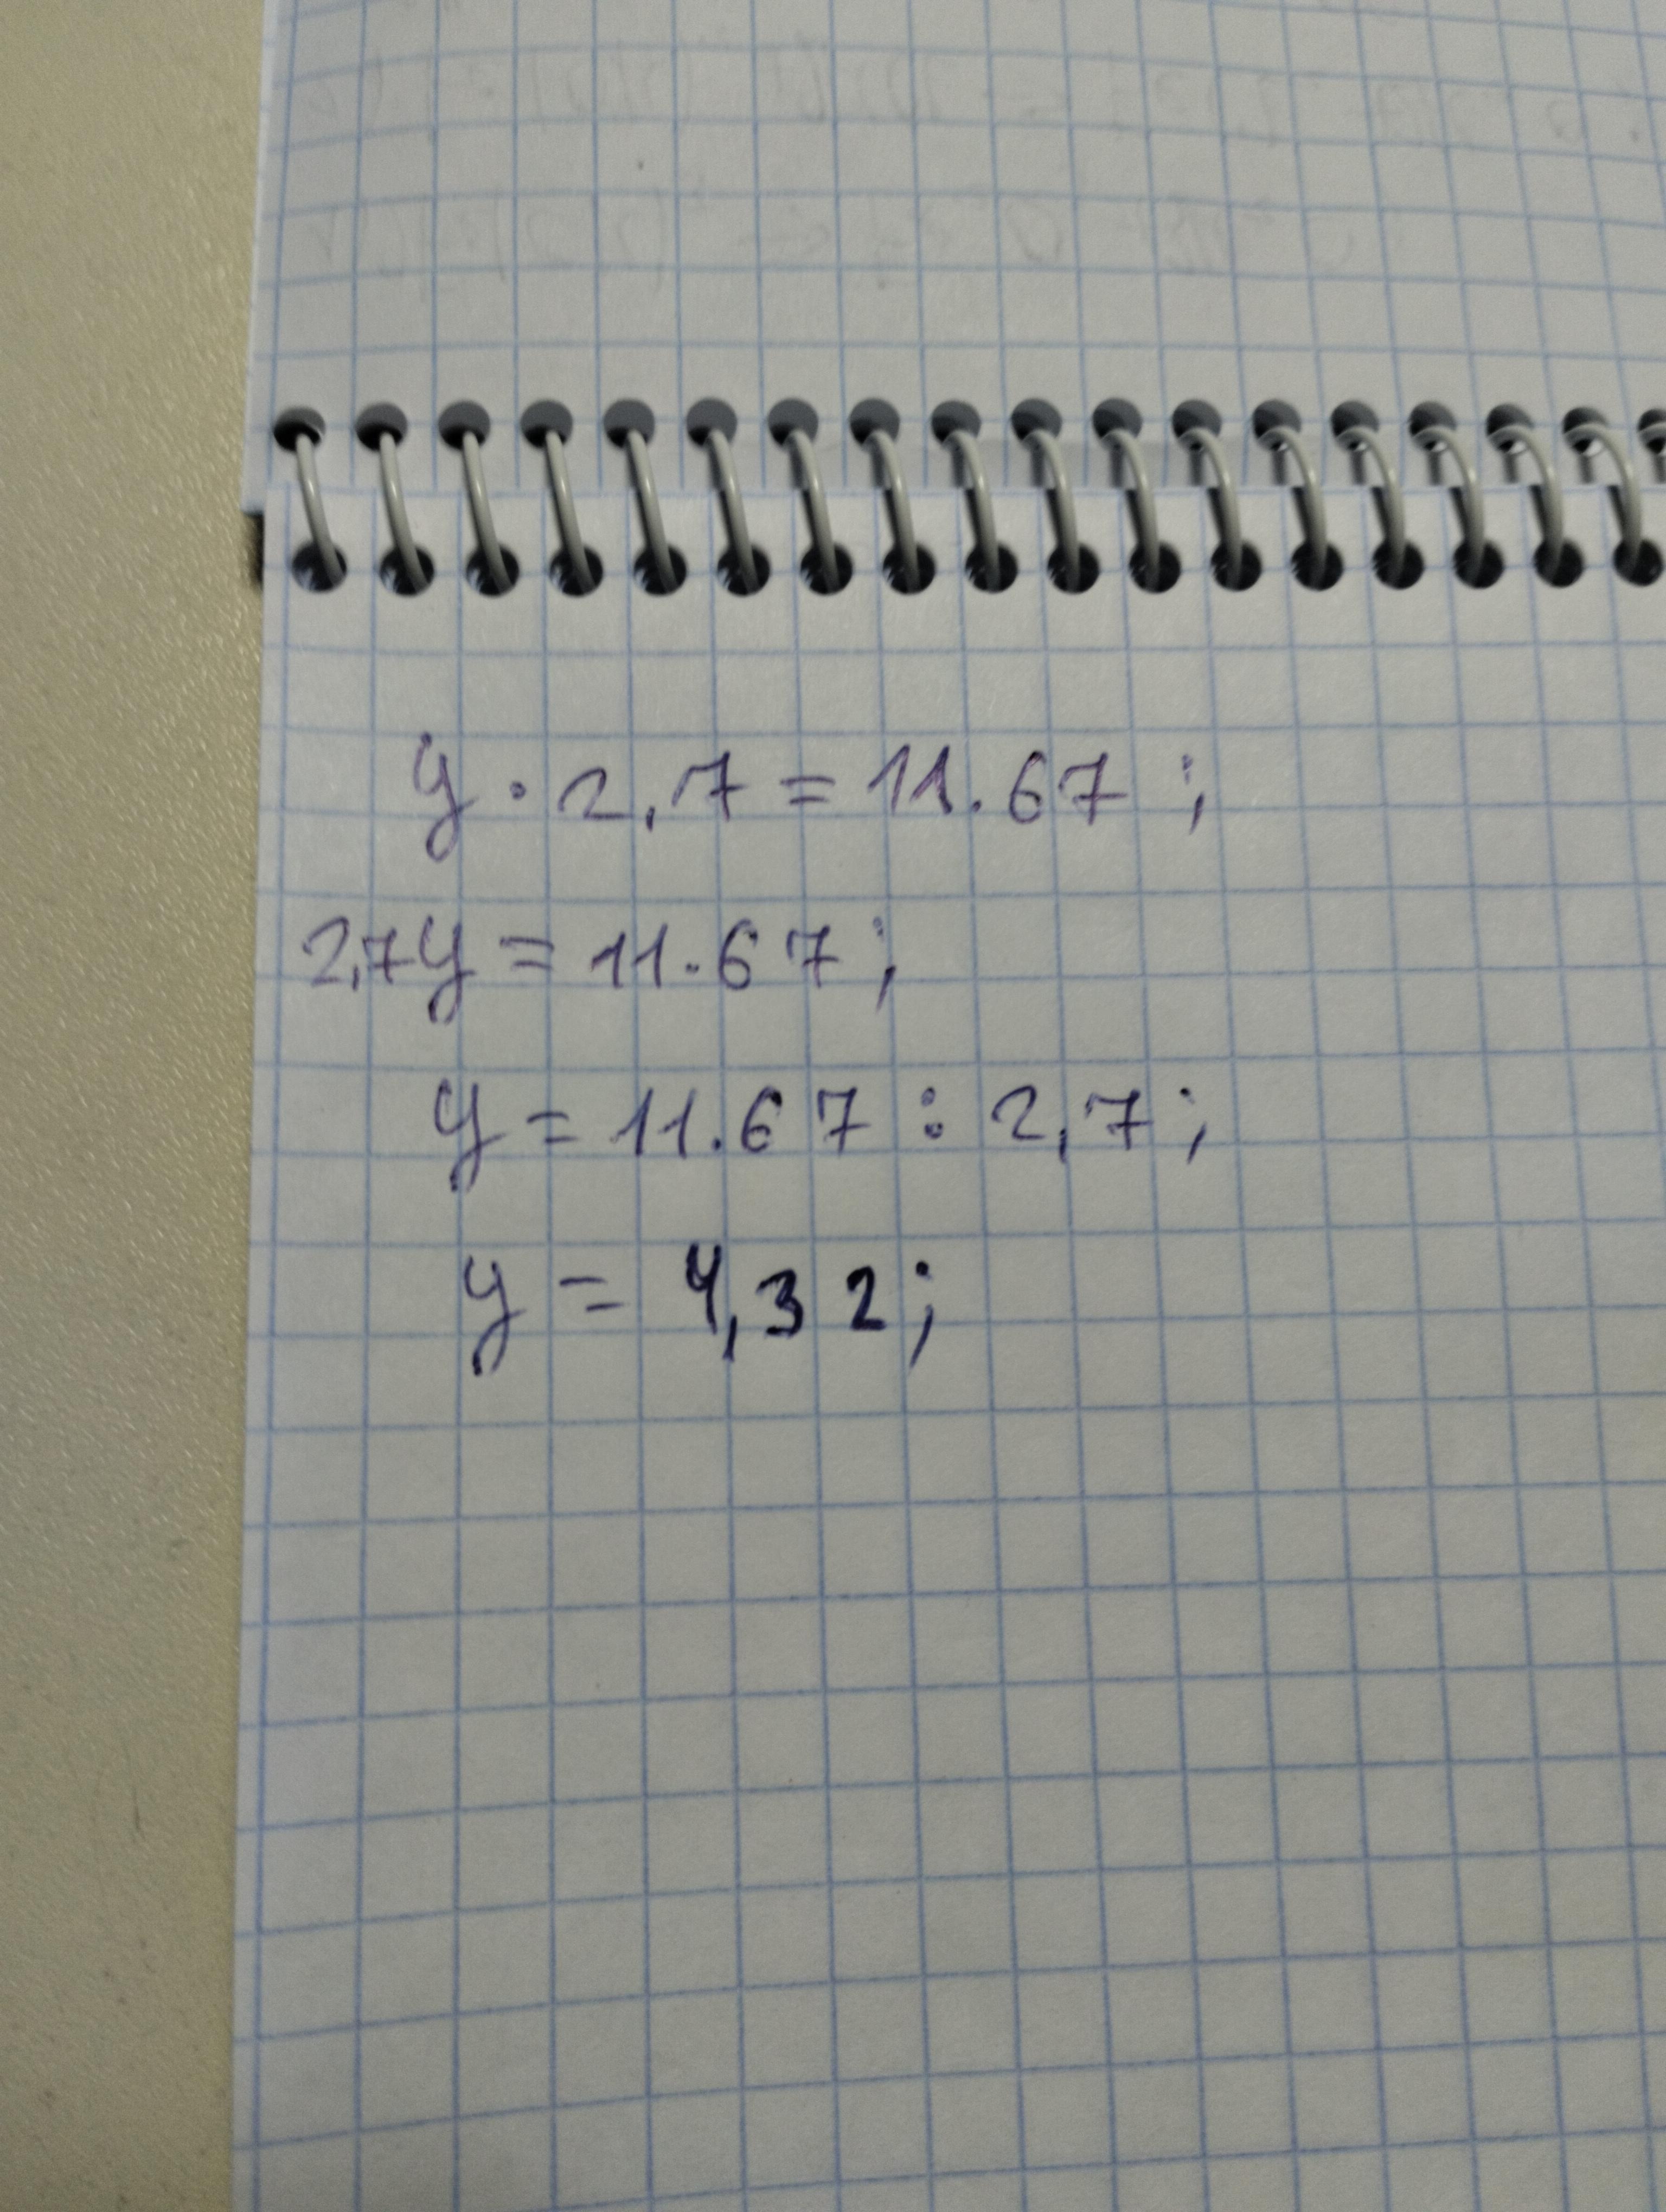 y · 2,7 = 11.67 ;
2,7y = 11.67 ;
y = 11.67 : 2,7 ;
y = 4,32 ;